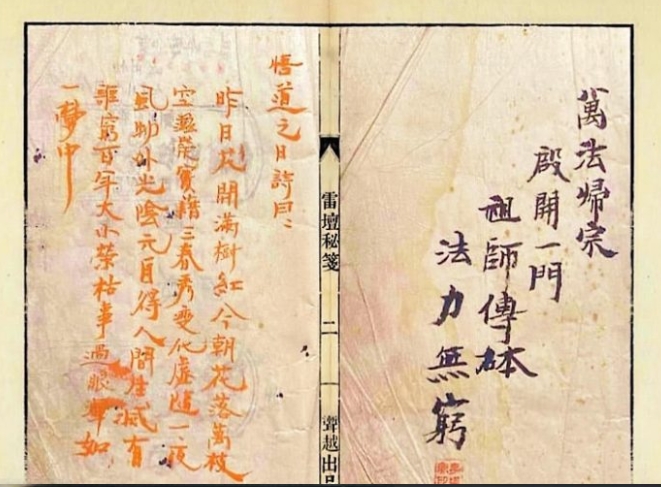 萬法歸宗
殿開一門
祖師傳砵
法力無窮
雷壇秘笺
二
越出品
悟道之日詩曰：
昨日花開滿樹紅今朝花落萬枝
空滋榮實藉三春秀变化虛隨一夜
風物外光陰元自得人間生滅有
誰窮百年大小榮枯事過眼渾如
一夢中